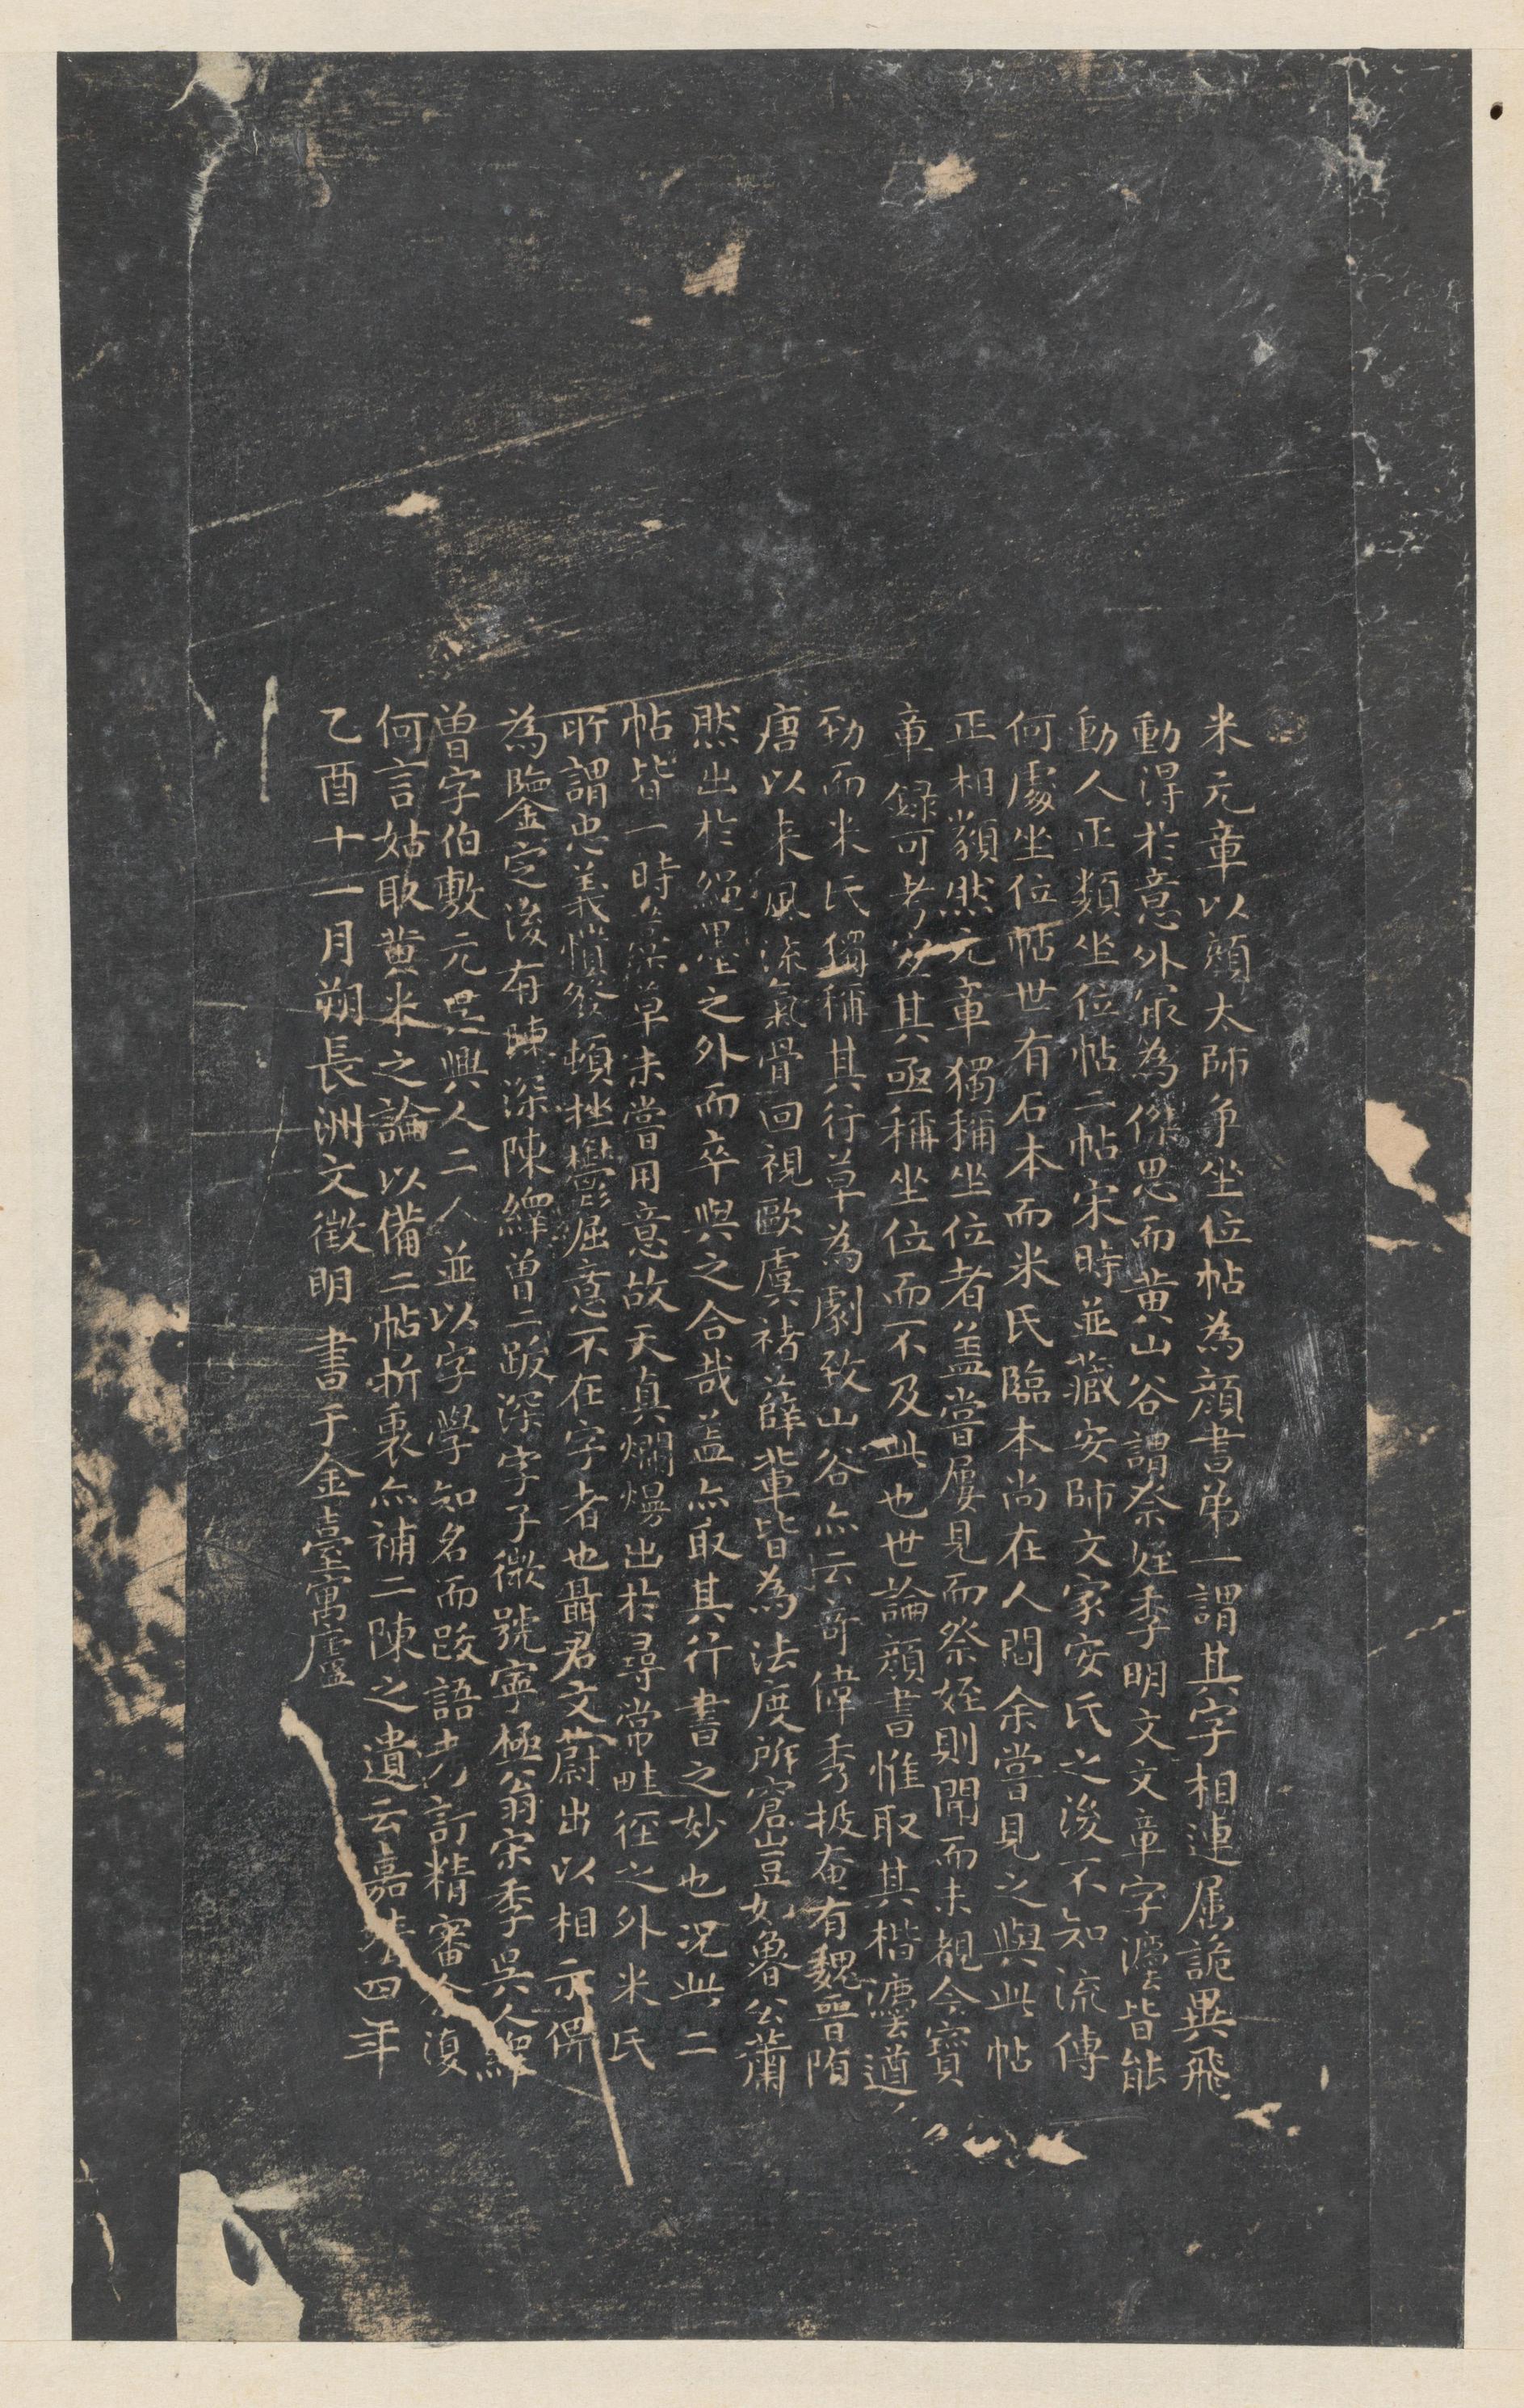 米元章以顔太師争坐位帖為顔書弟一謂其字相連属詭異飛
動得於意外冣為傑思而黄山谷謂祭姪季明文文章字灋皆能
動人正類坐位帖二帖宋時並藏安師文家安氏之後不知流傳
何處坐位帖世有石本而米氏臨本尚在人間余嘗見之與此帖
正相纇然元章獨稱坐位者盖嘗屢見而祭姪則聞而未覩今寶
章録可考其亟稱坐位而不及此也世論顔書惟取其楷灋遒
勁而米氏獨稱其行草為劇致山谷亦云奇偉秀拔奄有魏晉隋
唐以来風流氣骨回視歐虞褚薛軰皆為法度所窘豈如魯公蕭
然出於繩墨之外而卒與之合哉盖亦取其行書之妙也况此二
帖皆一時藁草未嘗用意故天真爛熳出於尋常畦径之外米氏
所謂忠義憤發頓挫欝屈意不在字者也聶君文蔚出以相示俾
為鑒定後有陳深陳繹曽二跋深字子微號寧極翁宋季吳人繹
曽字伯敷元吳興人二人並以字學知名而跋語考訂精審余復
何言姑取黄米之論以備二帖折衷亦補二陳之遺云嘉靖四年
乙酉十一月朔長洲文徴明書于金臺寓廬